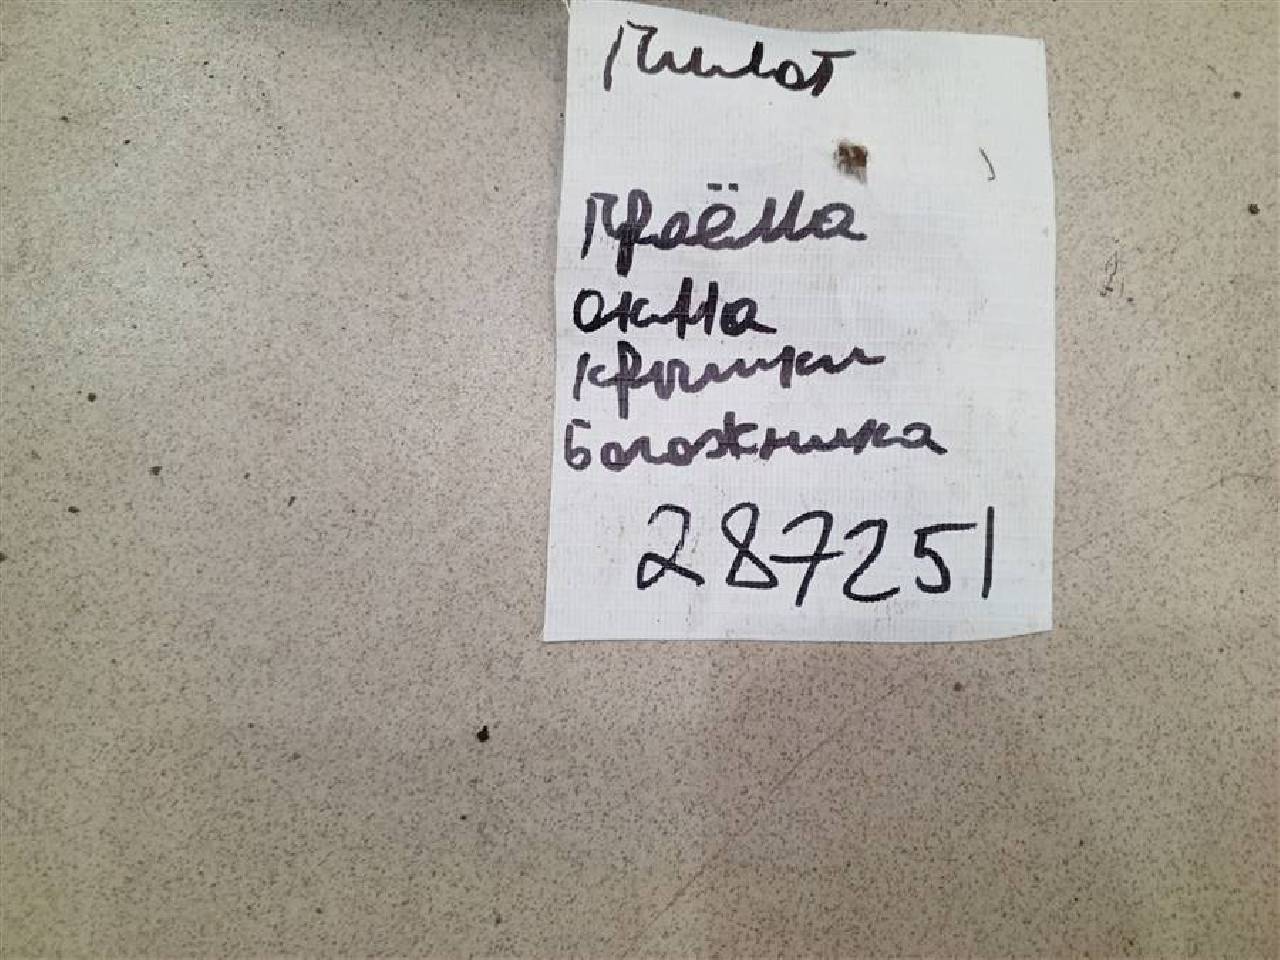 Пилот
Проёма
окна
крышки
Богожника
287251